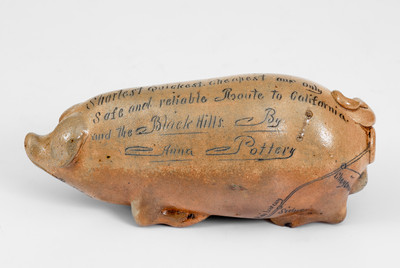 Shortest quickest cheapest our only
Safe and reliable Route to California
and the Black Hills By
Anna Pottery